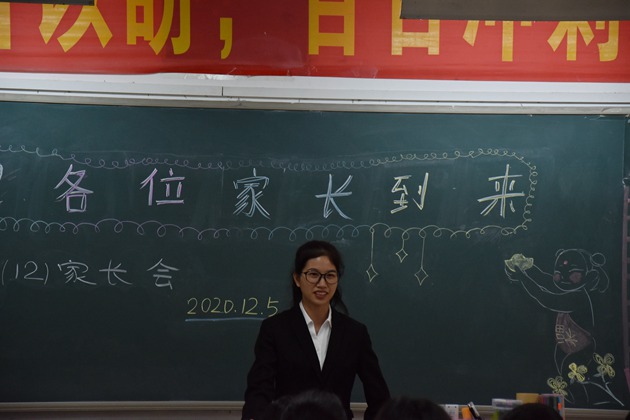 百日冲刺
各位家长到来
(12)家长会
2020.12.5